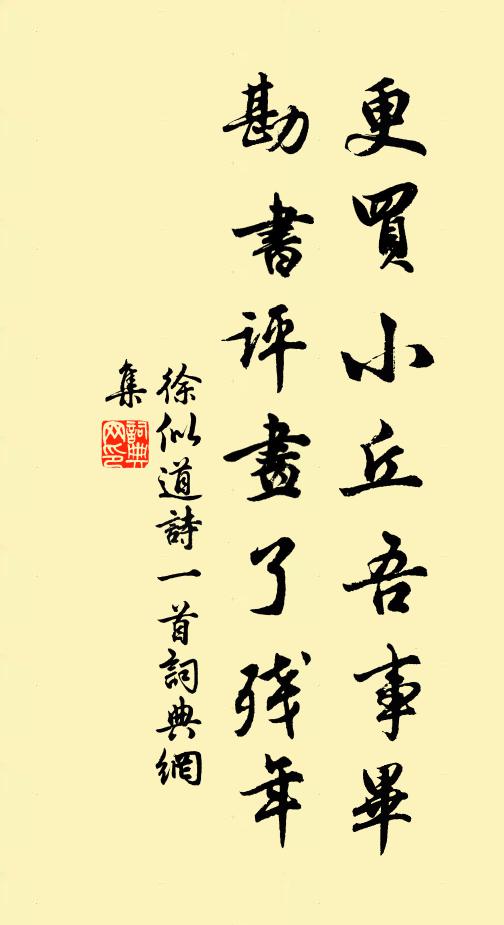 更買小丘吾事畢
勘書評畫了残年
徐似道詩一首詞典網
集
詞典
网印